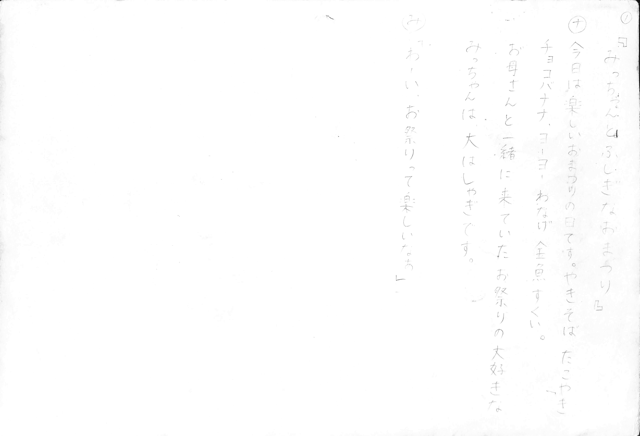 ①
みっちゃんとふしぎなおまつり
㋤ 今日は楽しいおまつりの日です。やきそば たこやき
チョコバナナ、ヨーヨー わなげ 金魚すくい。
お母さんと一緒に来ていたお祭りの大好きな
みっちゃんは、大はしゃぎです。
㋯「わーい、お祭りって楽しいなぁ」